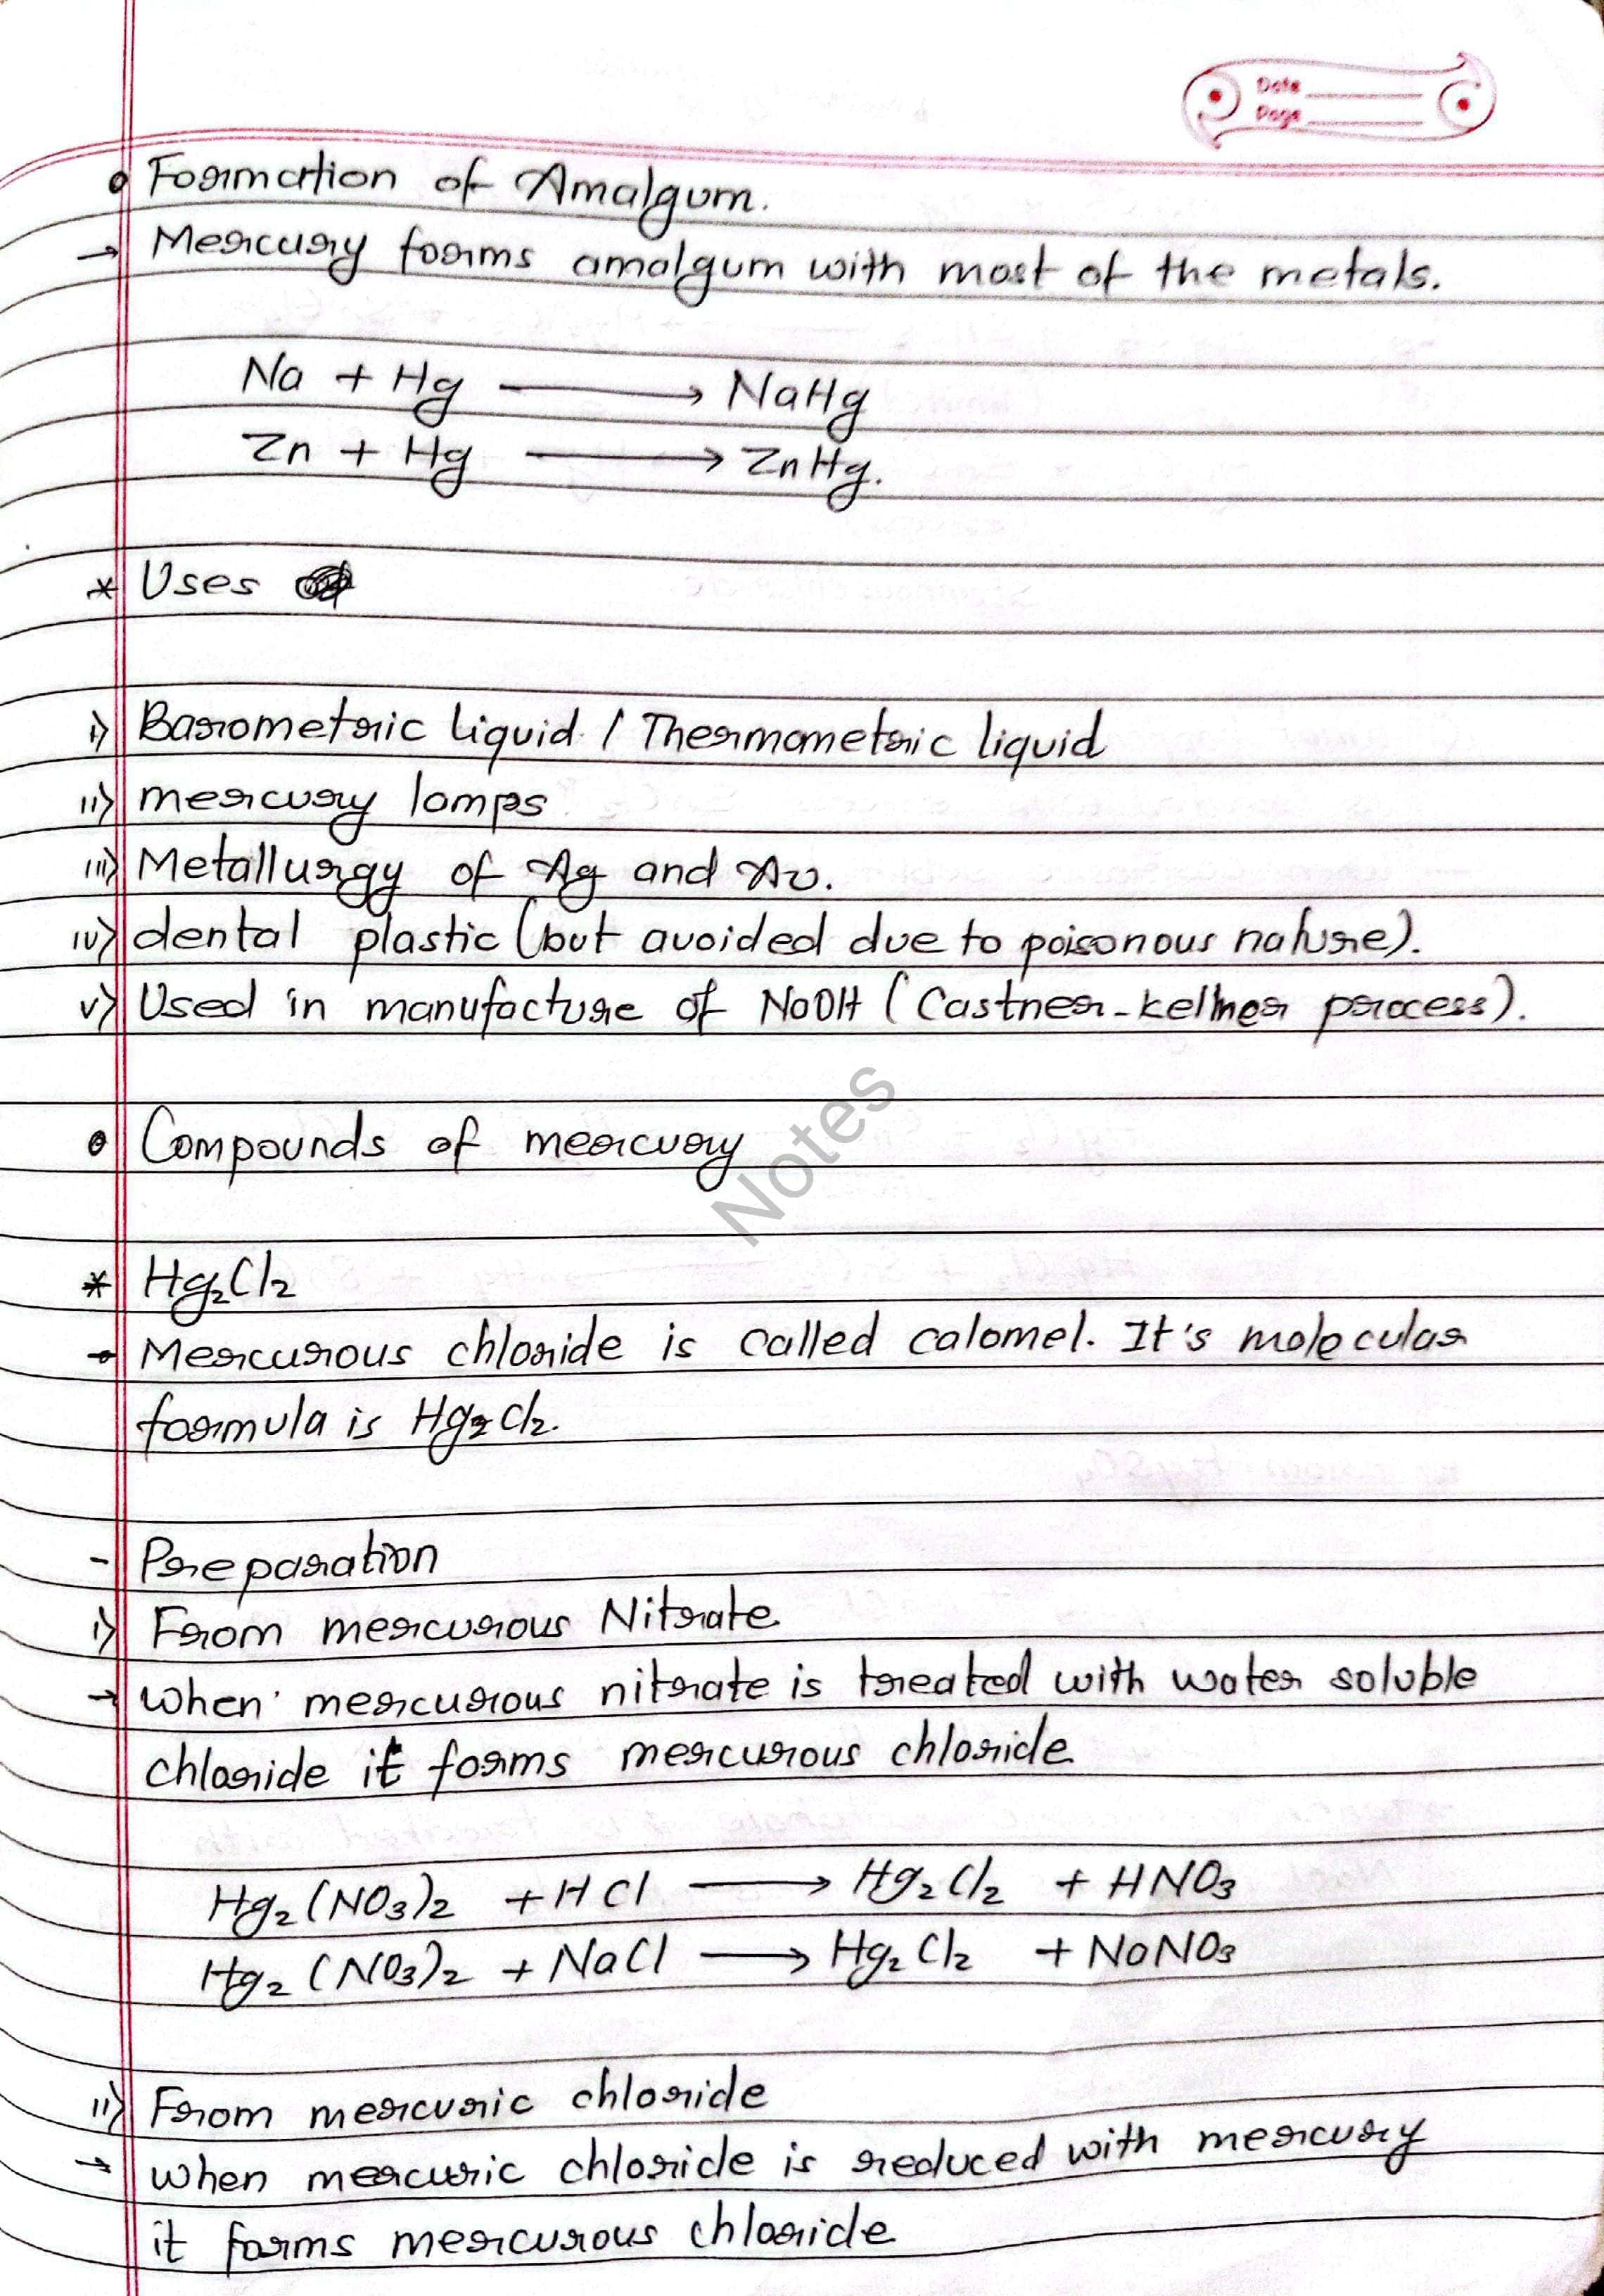 Date
Page
• Formation of Amalgum.
→ Mercury forms amalgum with most of the metals.
Na + Hg ⟶ NaHg
Zn + Hg ⟶ ZnHg.
* Uses
i) Barometric liquid / Thermometric liquid
ii) mercury lamps
iii) Metallurgy of Ag and Au.
iv) dental plastic (but avoided due to poisonous nature).
v) Used in manufacture of NaOH (Castner-kellner process).
• Compounds of mercury
Notes
* Hg₂Cl₂
→ Mercurous chloride is called calomel. It's molecular
formula is Hg₂Cl₂.
- Preparation
i) From mercurous Nitrate
→ when mercurous nitrate is treated with water soluble
chloride it forms mercurous chloride
Hg₂(NO₃)₂ + HCl ⟶ Hg₂Cl₂ + HNO₃
Hg₂(NO₃)₂ + NaCl ⟶ Hg₂Cl₂ + NaNO₃
ii) From mercuric chloride
→ when mercuric chloride is reduced with mercury
it forms mercurous chloride